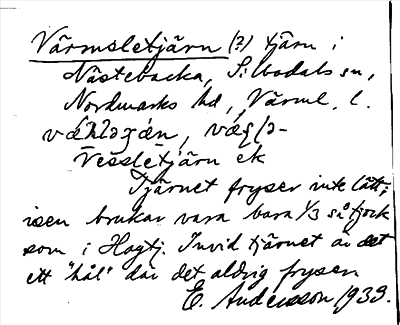 Värmsletjärn (?) tjärn i
Nästebacka, Silbodals sn,
Nordmarks hd, Värml. l.
Vessletjärn ek
Tjärnet fryser inte lätt;
isen brukar vara bara 1/3 så tjock
som i Högtj. Invid tjärnet är det
ett "hål" där det aldrig frysen
E. Andersson 1939.